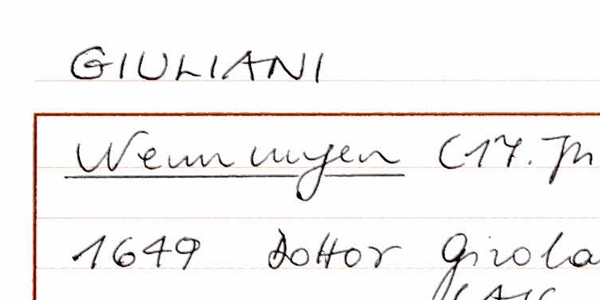 GIULIANI
Wenn (17. Jh
1649 Dottor Girola